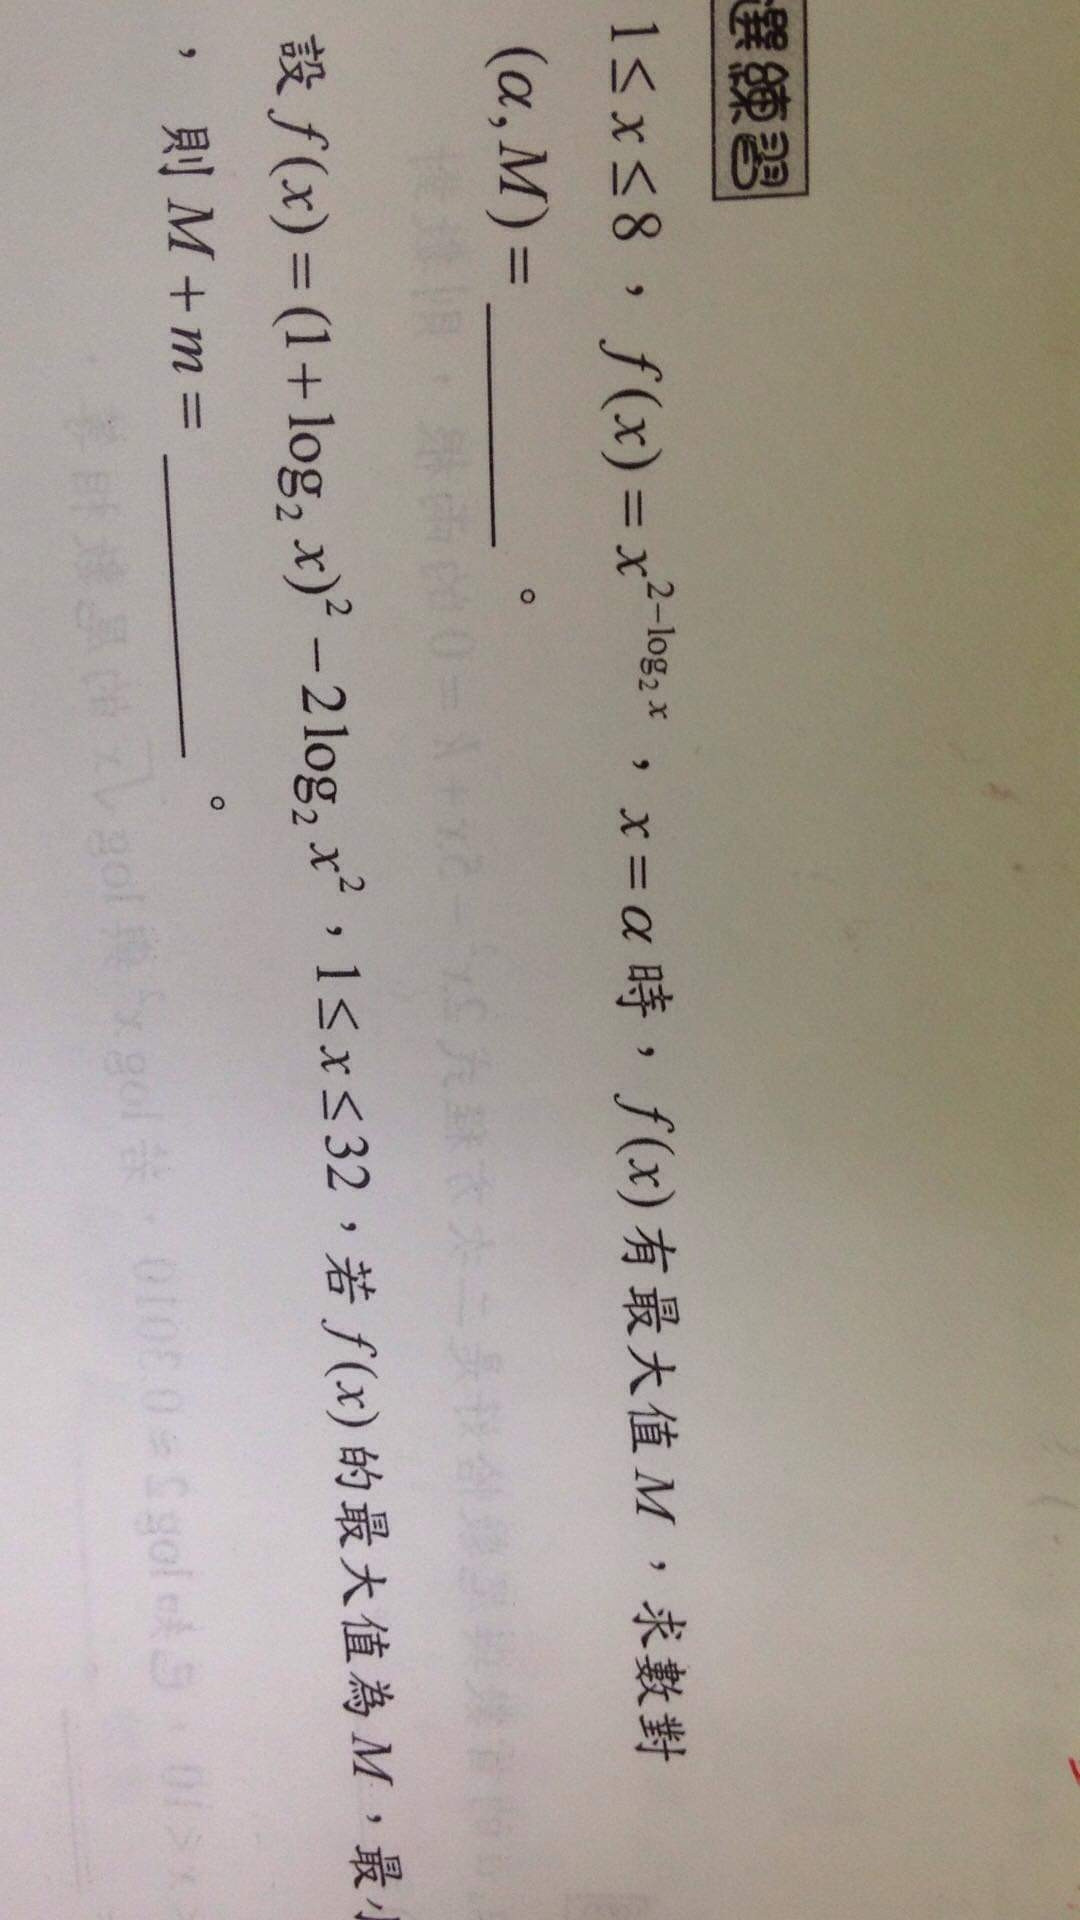 選練習
1≤x≤8，f(x)=x^{2−log₂ x}，x=α時，f(x)有最大值M，求數對
(α,M)=＿＿＿＿。
設f(x)=(1+log₂ x)²−2log₂ x²，1≤x≤32，若f(x)的最大值為M，最小
，則M+m=＿＿＿＿。